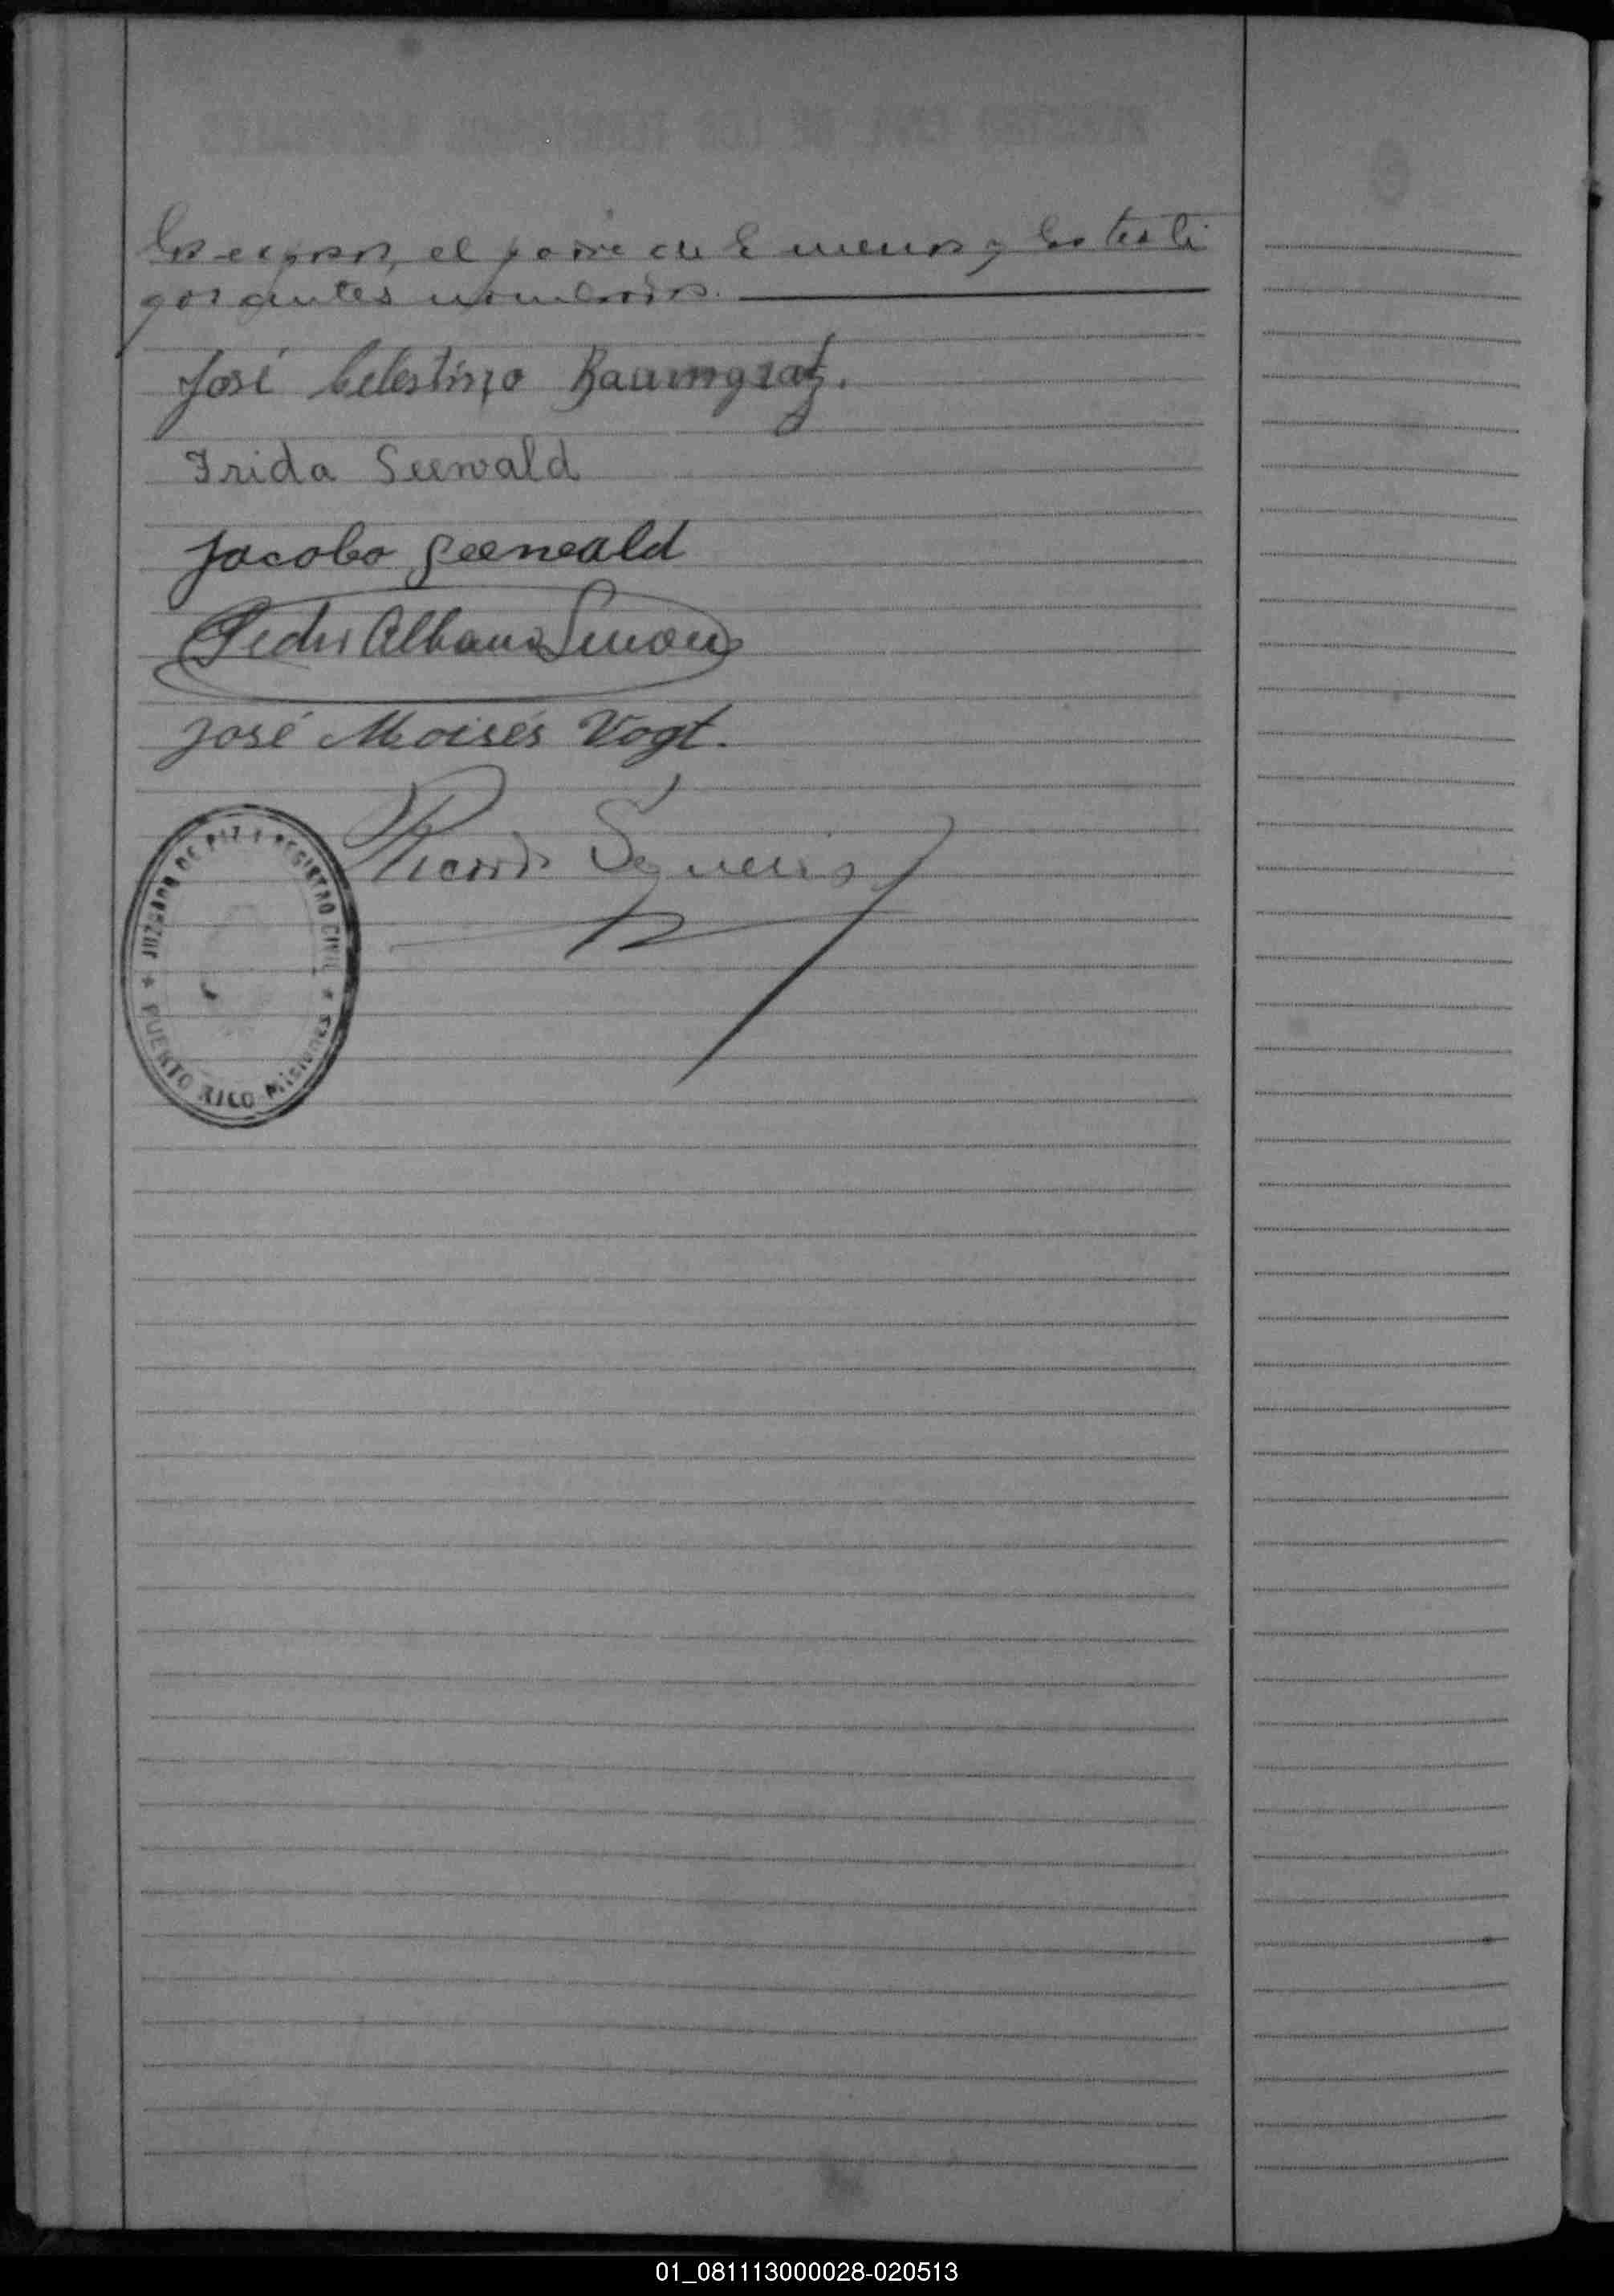 los esposos, el padre de la menor y los testi
gos antes nombrados.
José Celestino Baumgratz.
Frida Seewald
Jacobo Seewald
Pedro Albano Simon
José Moisés Vogt.
Ricardo
JUZGADO DE PAZ Y REGISTRO CIVIL
* PUERTO RICO Misiones *
01_081113000028-020513